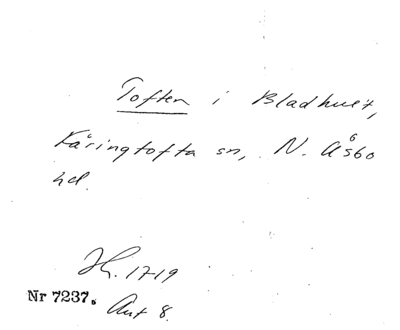 Toften i Bladhult,
Käringtofta sn, N. Åsbo
hd.
Jh. 1719
Nr 7237.
Ant 8.